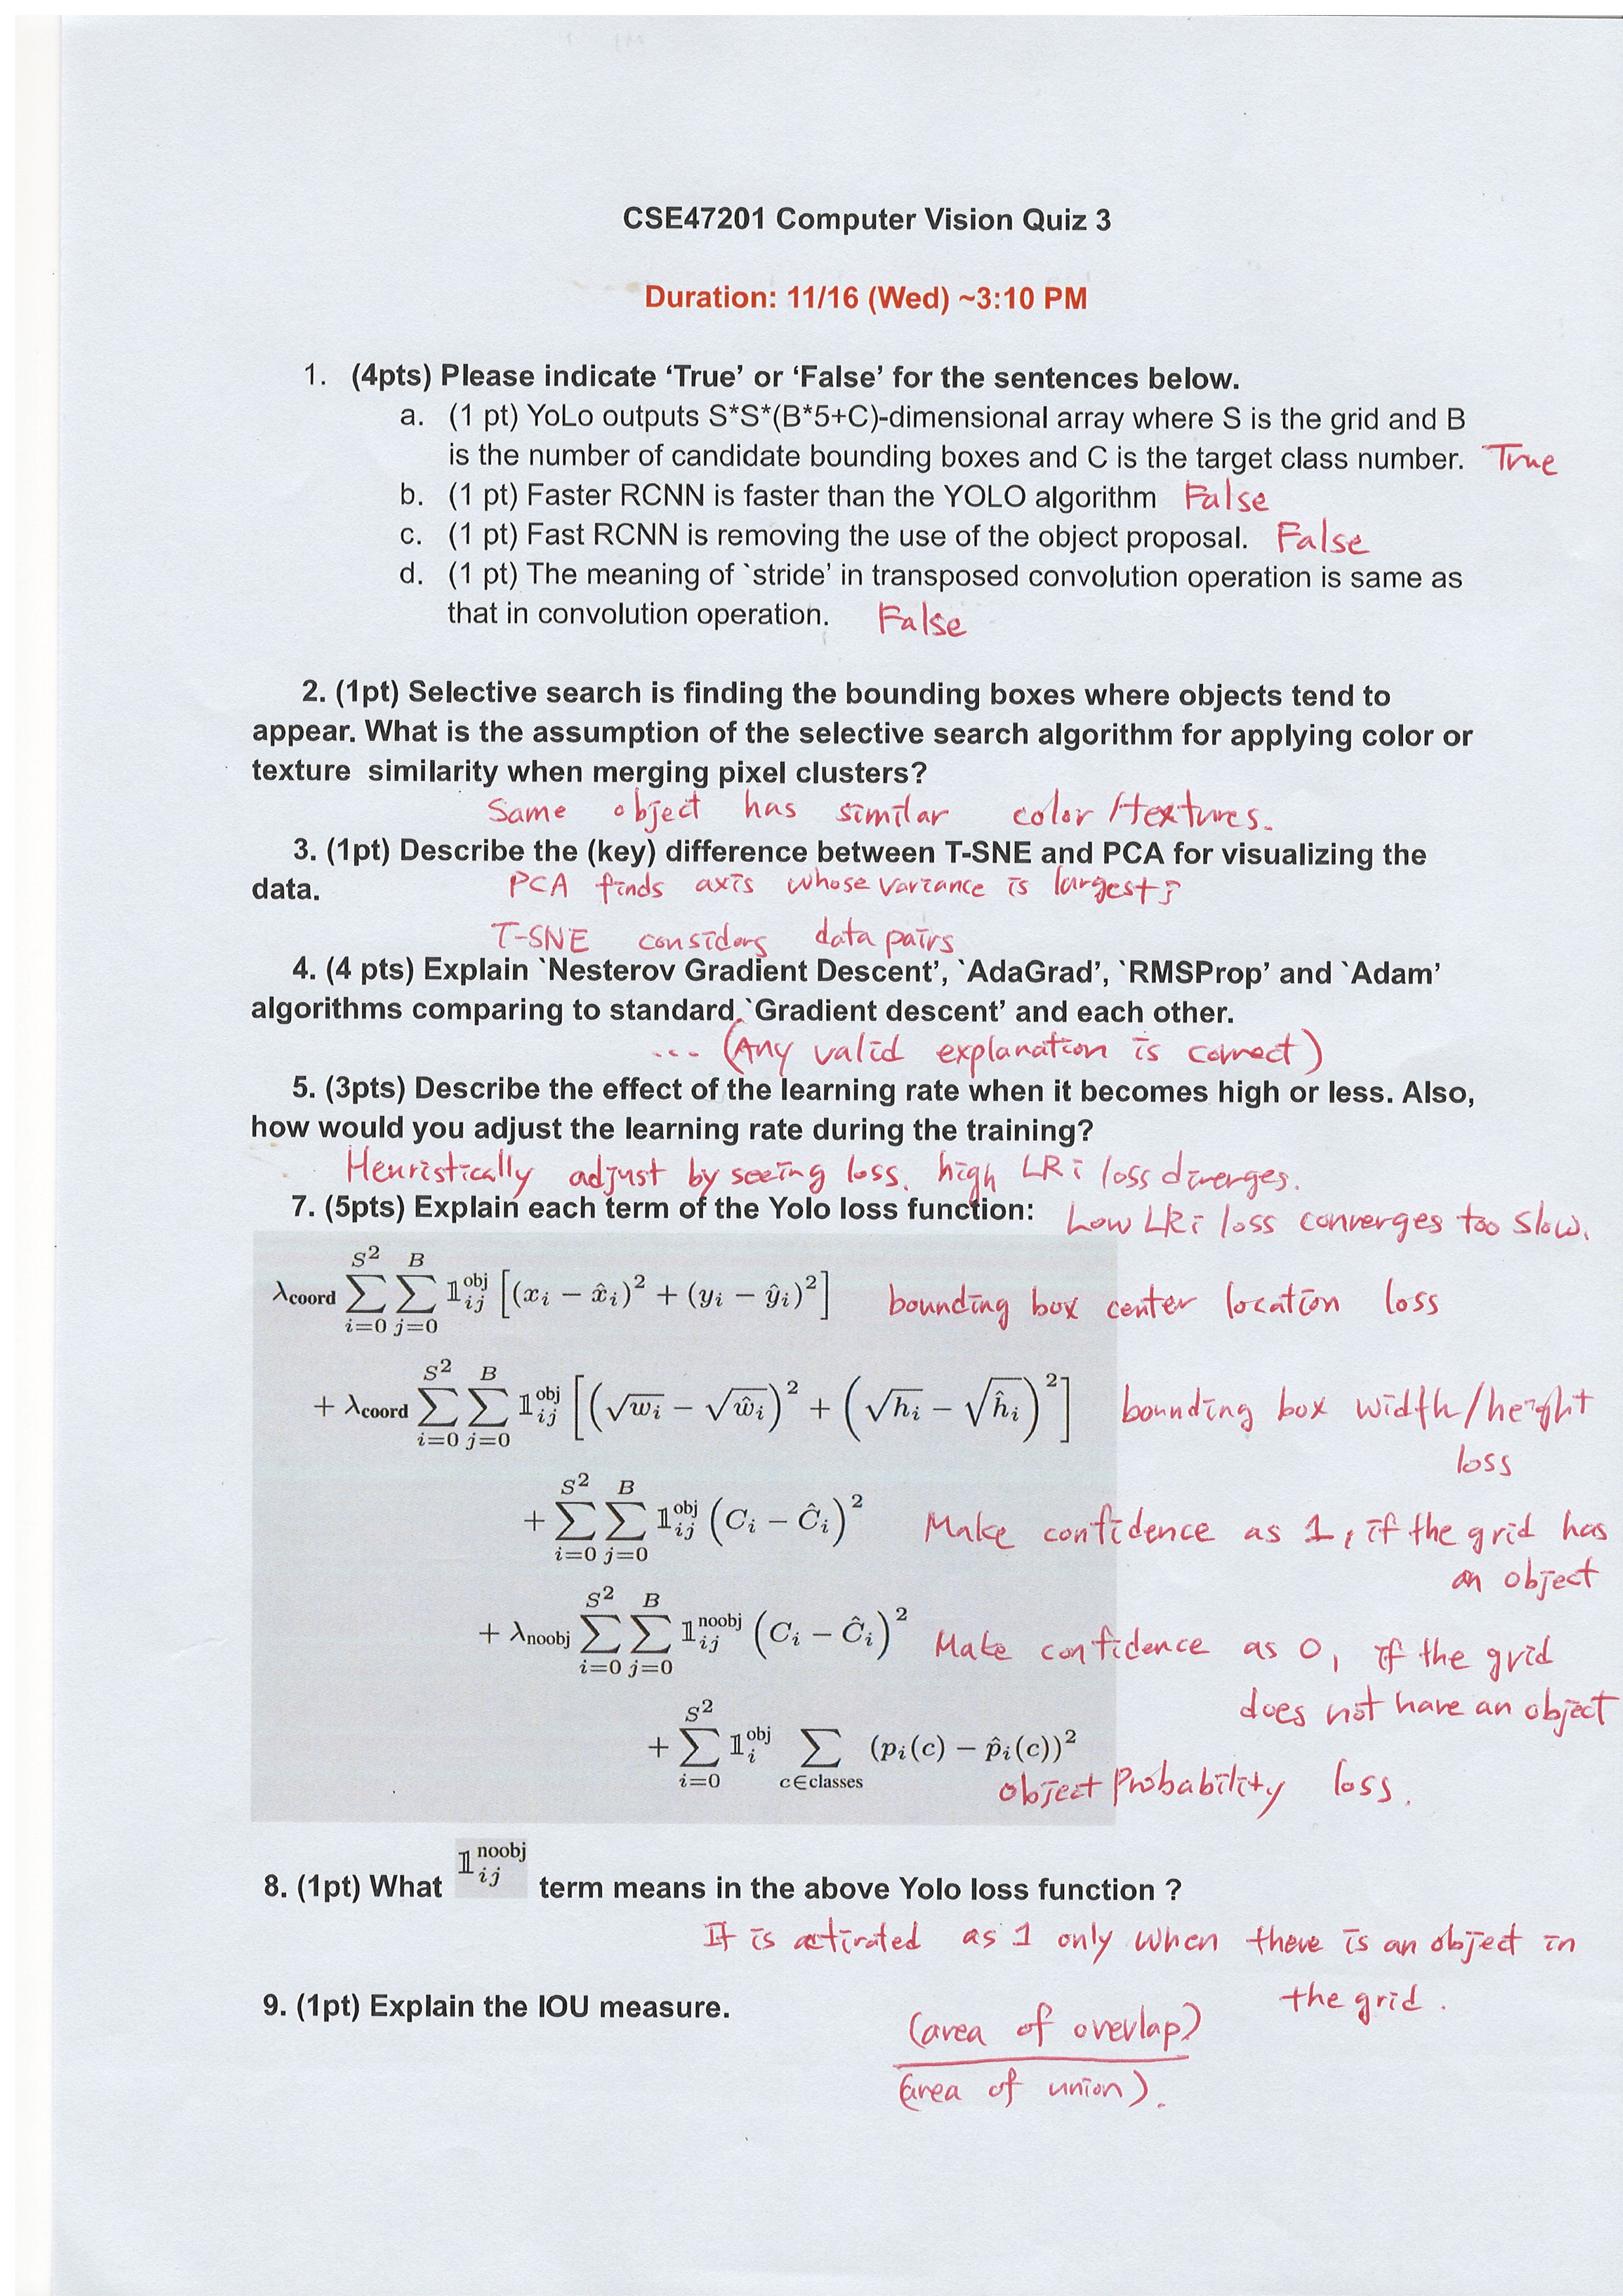 CSE47201 Computer Vision Quiz 3
Duration: 11/16 (Wed) ~3:10 PM
1. (4pts) Please indicate ‘True’ or ‘False’ for the sentences below.
a. (1 pt) YoLo outputs S*S*(B*5+C)-dimensional array where S is the grid and B
is the number of candidate bounding boxes and C is the target class number. True
b. (1 pt) Faster RCNN is faster than the YOLO algorithm False
c. (1 pt) Fast RCNN is removing the use of the object proposal. False
d. (1 pt) The meaning of `stride’ in transposed convolution operation is same as
that in convolution operation. False
2. (1pt) Selective search is finding the bounding boxes where objects tend to
appear. What is the assumption of the selective search algorithm for applying color or
texture similarity when merging pixel clusters?
Same object has similar color/textures.
3. (1pt) Describe the (key) difference between T-SNE and PCA for visualizing the
data. PCA finds axis whose variance is largest;
T-SNE considers data pairs
4. (4 pts) Explain `Nesterov Gradient Descent’, `AdaGrad’, `RMSProp’ and `Adam’
algorithms comparing to standard `Gradient descent’ and each other.
... (Any valid explanation is correct)
5. (3pts) Describe the effect of the learning rate when it becomes high or less. Also,
how would you adjust the learning rate during the training?
Heuristically adjust by seeing loss. high LR: loss diverges.
7. (5pts) Explain each term of the Yolo loss function: Low LR: loss converges too slow.
λcoord ∑_{i=0}^{S²} ∑_{j=0}^{B} 𝟙_{ij}^{obj} [(x_i − x̂_i)² + (y_i − ŷ_i)²] bounding box center location loss
+ λcoord ∑_{i=0}^{S²} ∑_{j=0}^{B} 𝟙_{ij}^{obj} [(√w_i − √ŵ_i)² + (√h_i − √ĥ_i)²] bounding box width/height
loss
+ ∑_{i=0}^{S²} ∑_{j=0}^{B} 𝟙_{ij}^{obj} (C_i − Ĉ_i)² Make confidence as 1, if the grid has
an object
+ λnoobj ∑_{i=0}^{S²} ∑_{j=0}^{B} 𝟙_{ij}^{noobj} (C_i − Ĉ_i)² Make confidence as 0, if the grid
does not have an object
+ ∑_{i=0}^{S²} 𝟙_{i}^{obj} ∑_{c∈classes} (p_i(c) − p̂_i(c))²
object Probability loss.
8. (1pt) What 𝟙_{ij}^{noobj} term means in the above Yolo loss function ?
It is activated as 1 only when there is an object in
the grid.
9. (1pt) Explain the IOU measure.
(area of overlap)
(area of union).